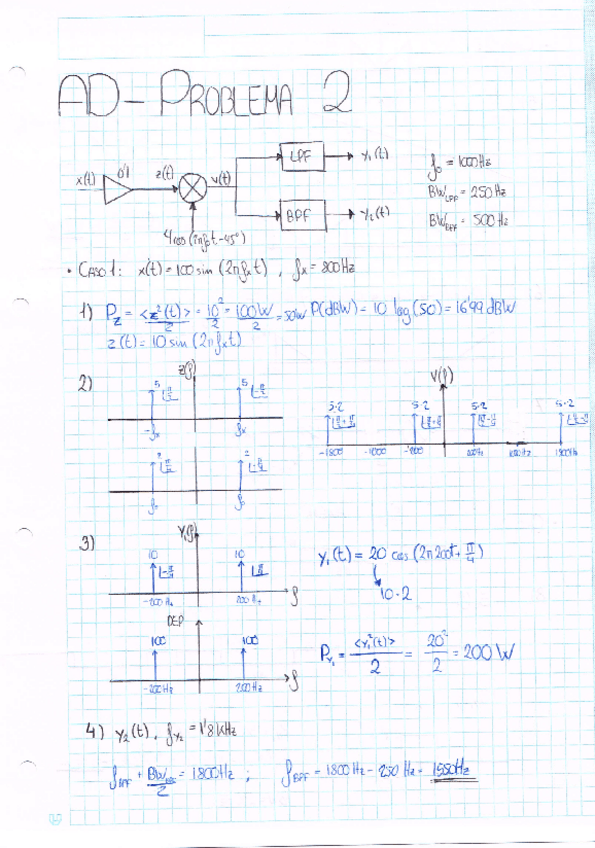 AD - PROBLEMA 2
x(t) 0'1 z(t) v(t) LPF y₁(t)
BPF y₂(t)
4cos(2πf₀t-45°)
f₀ = 1000Hz
BW_LPF = 250Hz
BW_BPF = 500Hz
• CASO 1: x(t) = 100 sin (2πfₓt), fₓ = 800Hz
1) P_z = <z²(t)>/2 = 10²/2 = 100W/2 = 50W P(dBW) = 10 log(50) = 16'99 dBW
z(t) = 10 sin (2πfₓt)
2) Z(f) V(f)
5 5
-fₓ fₓ
5·2 5·2 5·2 5·2
-1800 -1000 -200 200Hz 1000Hz 1800Hz
2 2
f₀ f₀
3) Y₁(f)
10 10
-200Hz 200Hz f
y₁(t) = 20 cos (2π200t + π/4)
10·2
DEP
100 100
-200Hz 200Hz f
P_Y₁ = <y₁²(t)>/2 = 20²/2 = 200 W
4) y₂(t), f_Y₂ = 1'8 KHz
f_BPF + BW_BPF/2 = 1800Hz ; f_BPF = 1800Hz - 250 Hz = 1550Hz